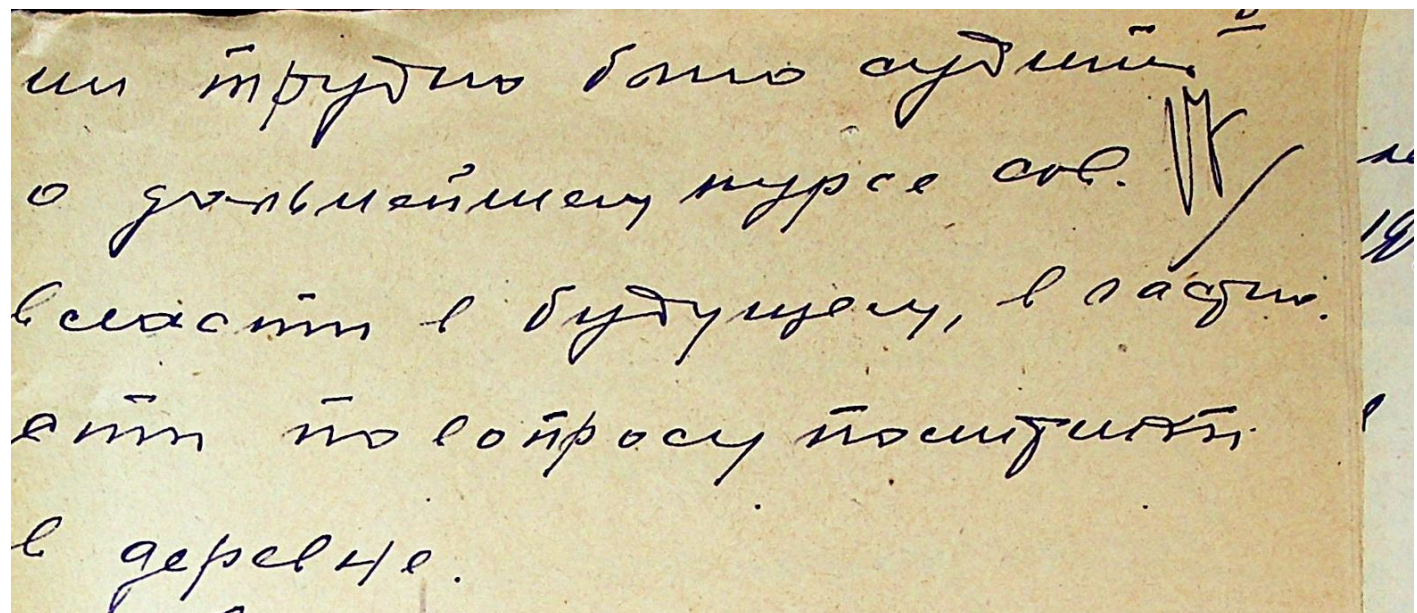 им трудно было судить
о дальнейшем курсе сов.
власти в будущем, в частно.
сти по вопросу политики
в деревне.